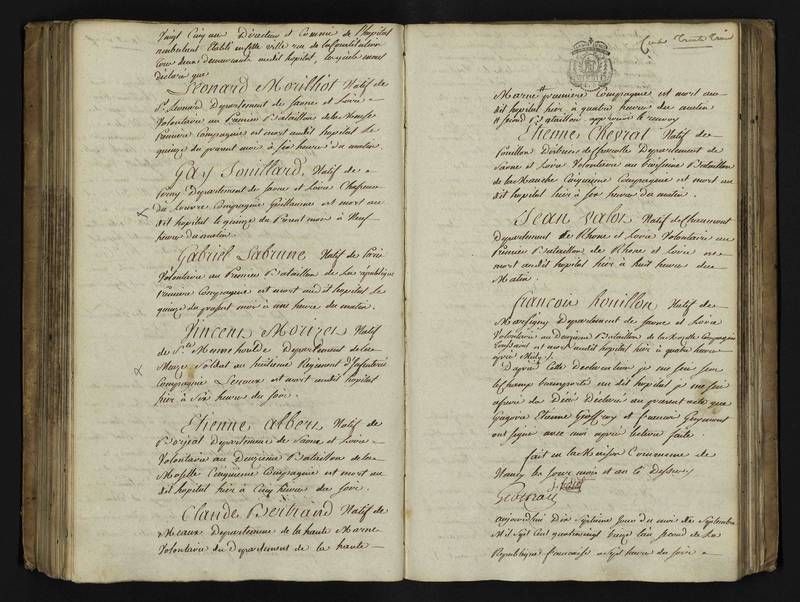 vingt Cinq ans Directeur et Commis de l'hopital
ambulent Etabli en cette ville rue de la Constitution
tous deux demeurants audit hopital, lesquels nous
déclaré que
Léonard Morilhot Natif de
St. Leonard Departement de Saone et Loire
Volontaire au Premier Bataillon de la Meuse
Premiere Compagnie est mort audit hopital le
quinze du present mois à Six heures du matin.
Gay Souillard, Natif de
Departement de Saone et Loire Chasseur
du Louvre Compagnie Guillaume est mort au
dit hopital le quinze du Present mois à Neuf
heures du matin.
Gabriel Labrune Natif de Paris
Volontaire au Premier Bataillon de La république
Premiere Compagnie est mort audit hopital le
quinze du present mois à une heure du matin.
Vincent Morizot Natif
de Ste Mennehoulde Departement de la
Soldat au huitieme Regiment d'Infanterie
Compagnie Leroux est mort audit hopital
hier à Six heures du soir.
Etienne Albert Natif de
Departement de Saone et Loire
Volontaire au Deuxieme Bataillon de la
Moselle Cinquieme Compagnie est mort au
dit hopital hier à Cinq heures du soir.
Claude Bertrand Natif de
Meaux Departement de la haute Marne
Volontaire du Departement de la haute
Cent Trente Trois
Marne # premiere Compagnie est mort au
dit hopital hier à quatre heures du matin
# second Bataillon approuvé le renvoy
Etienne Chevrat Natif de
District de Charolle Departement de
Saone et Loire Volontaire au troisieme Bataillon
de la Manche Cinquieme Compagnie est mort au
dit hopital hier à six heures du matin.
Jean Valot Natif de Chaumont
Departement de Rhone et Loire Volontaire au
Premier Bataillon de Rhone et Loire
mort audit hopital hier à huit heures du
Matin.
françois Rouillon Natif de
Marcigny Departement de Saone et Loire
Volontaire au Deuxieme Bataillon de la Moselle Compagnie
Toussaint est mort audit hopital hier à quatre heures
après Midy.
D'après Cette Declaration je me suis sur
le champ transporté au dit hopital je me suis
assuré du Décès Déclaré au présent acte que
Etienne Gioffroy et francois
ont signé avec moi après lecture faite.
fait en la Maison Commune de
Nancy les jour mois et an ci Dessus
aujourd'hui Dix Septieme jour du mois de Septembre
Mil Sept Cent quatrevingt treize l'an second de La
Republique francaise à sept heures du soir